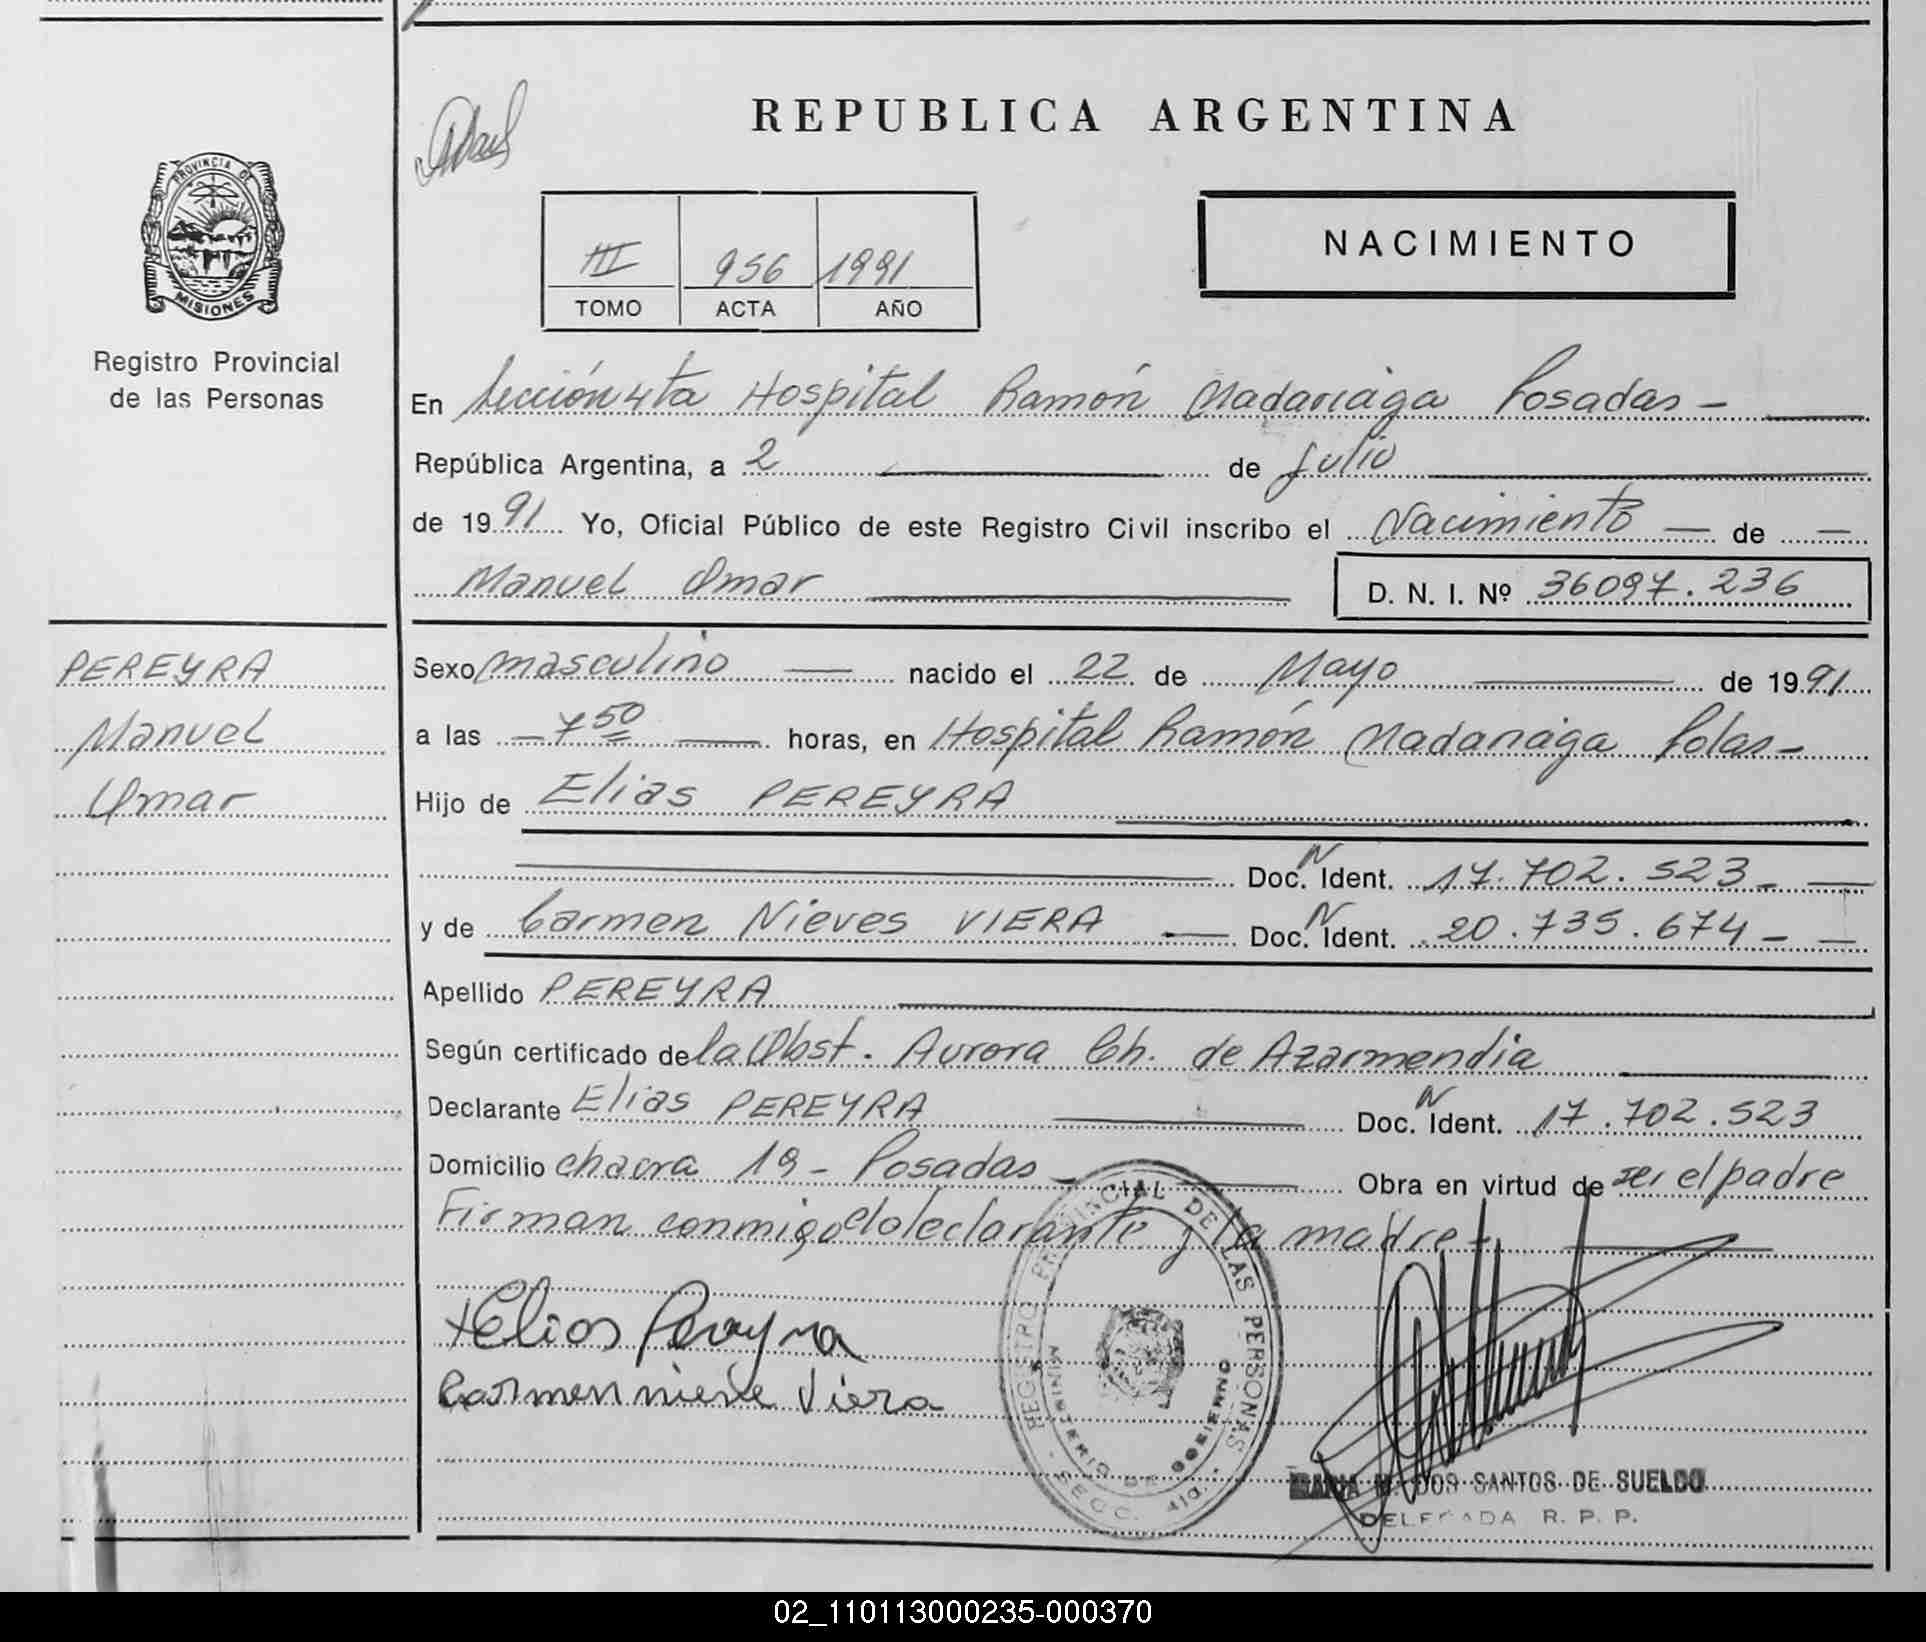 REPUBLICA ARGENTINA
PROVINCIA DE
MISIONES
III 956 1991
TOMO ACTA AÑO
NACIMIENTO
Registro Provincial
de las Personas
En Sección 4ta Hospital Ramón Madariaga Posadas -
República Argentina, a 2 de Julio
de 1991 Yo, Oficial Público de este Registro Civil inscribo el Nacimiento de
Manuel Omar D. N. I. Nº 36097.236
PEREYRA
Manuel
Omar
Sexo masculino nacido el 22 de Mayo de 1991
a las 7 50 horas, en Hospital Ramón Madariaga Pdas-
Hijo de Elias PEREYRA
Doc. N Ident. 17.702.523-
y de Carmen Nieves VIERA Doc. N Ident. 20.735.674-
Apellido PEREYRA
Según certificado de la Obst. Aurora Ch. de Azarmendia
Declarante Elias PEREYRA Doc. N Ident. 17.702.523
Domicilio chacra 19 - Posadas Obra en virtud de ser el padre
Firman conmigo el declarante y la madre-
Elios Pereyra
Carmen nieve Viera
REGISTRO PROVINCIAL DE LAS PERSONAS
MINISTERIO DE GOBIERNO
SECC. 4ta.
M. DOS SANTOS DE SUELDO
DELEGADA R. P. P.
02_110113000235-000370